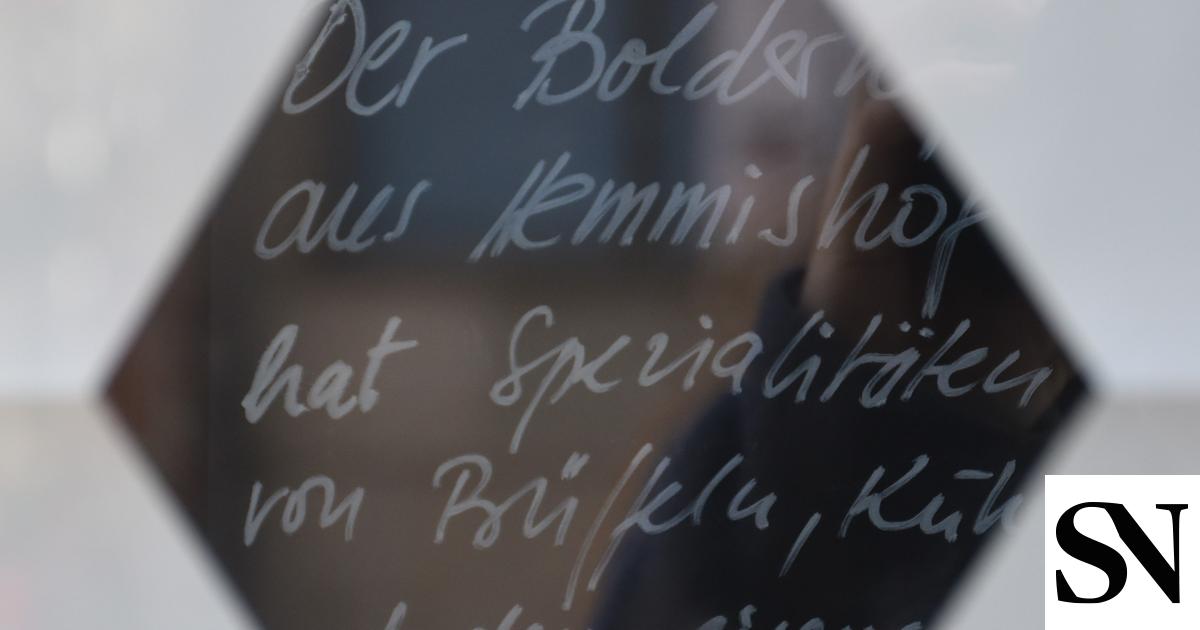 Der Bolderh
aus Hemmishof
hat Spezialitäten
von Büffeln, Küh
SN